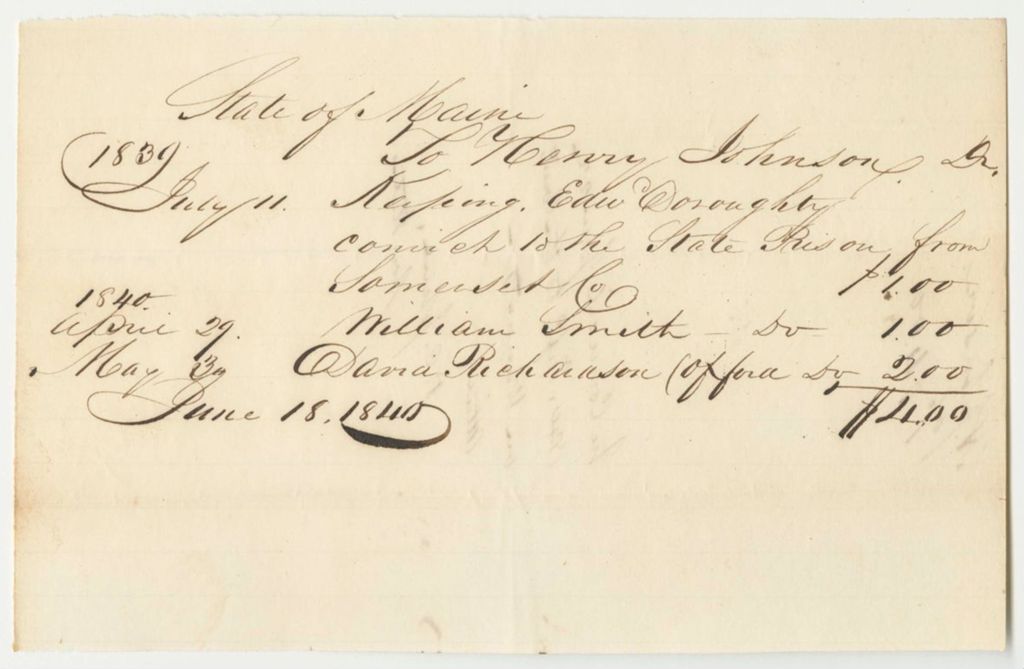 State of Maine
1839 To Henry Johnson Dr.
July 11. Keeping Edwd Doroughty
convict to the State Prison from
Somerset Co $1.00
1840
April 29. William Smith - Do 1.00
May 30 David Richardson (Oxford Do 2.00
June 18. 1840 $4.00